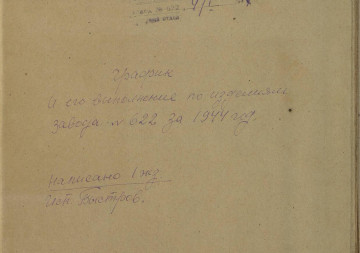 График
и его выполнение по изделиям
завода № 622 за 1944 год.
написано 1 экз
исп. Быстров.